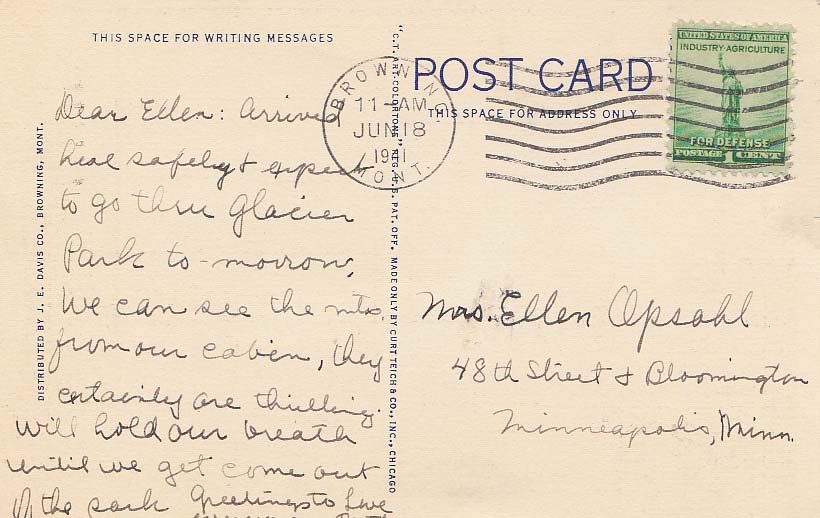 THIS SPACE FOR WRITING MESSAGES
Dear Ellen: Arrived
heal safely & expect
to go thru Glacier
Park to-morrow,
We can see the mts,
from our cabien, they
certainly are thrilling.
Will hold our breath
until we get come out
of the park Greetings to
DISTRIBUTED BY J. E. DAVIS CO., BROWNING, MONT.
"C.T. ART-COLORTONE" REG. U.S. PAT. OFF. MADE ONLY BY CURT TEICH & CO., INC., CHICAGO
POST CARD
THIS SPACE FOR ADDRESS ONLY
BROWNING
11-AM
JUN 18
1941
MONT.
UNITED STATES OF AMERICA
INDUSTRY-AGRICULTURE
FOR DEFENSE
POSTAGE 1 CENT
Mrs. Ellen Opsahl
48th Street & Bloomington
Minneapolis, Minn.